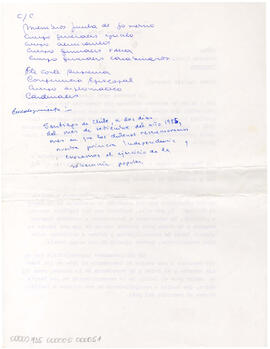 C/C
Miembros Junta de Gobierno
Cuerpo Generales Ejército
Cuerpo Almirantes
Cuerpo Generales FACH
Cuerpo Generales Carabineros
Pte Corte Suprema
Conferencia Episcopal
Cuerpo Diplomático
Cardenales
Encabezamiento :-
Santiago de Chile, a dos días
del mes de septiembre del año 1985,
mes en que los chilenos
nuestra primera Independencia y
el ejercicio de la
soberanía popular.